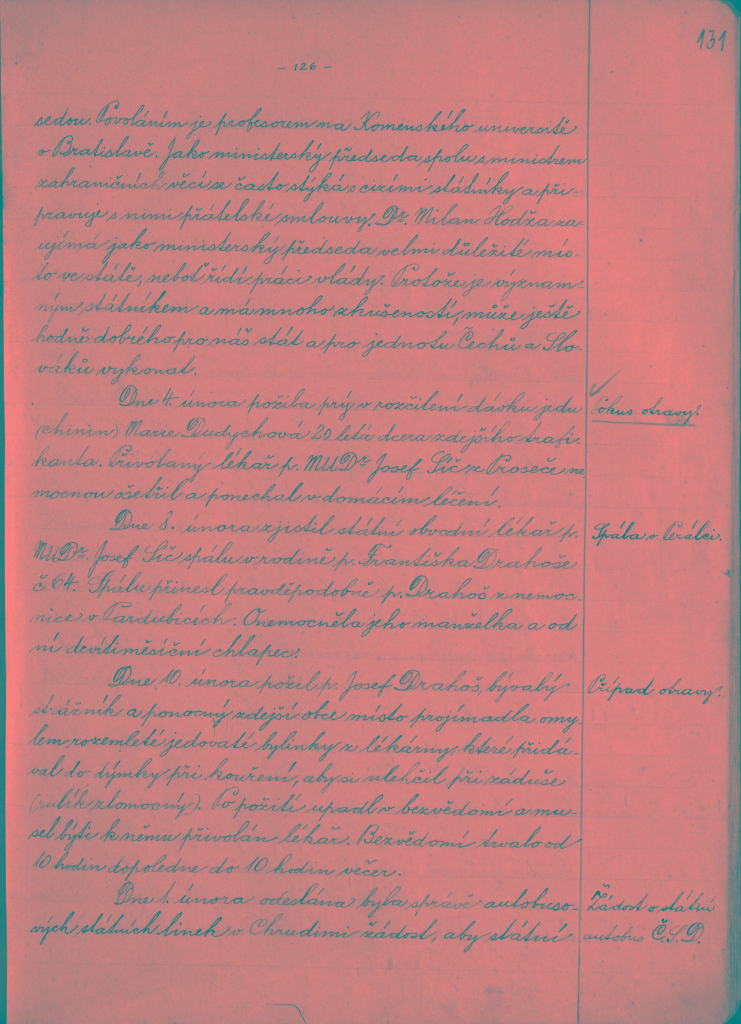 131
- 126 -
sedou. Povoláním je profesorem na Komenského universitě
v Bratislavě. Jako ministerský předseda, spolu s ministrem
zahraničních věcí se často stýká s cizími státníky a při-
pravuje s nimi přátelské smlouvy. Dr. Milan Hodža za-
ujímá jako ministerský předseda velmi důležité mís-
to ve státě, neboť řídí práci vlády. Protože je význam-
ným státníkem a má mnoho zkušeností, může ještě
hodně dobrého pro náš stát a pro jednotu Čechů a Slo-
váků vykonat.
Dne 4. února požila prý v rozčilení dávku jedu
Pokus otravy!
(chinin) Marie Dudychová 20 letá dcera zdejšího trafi-
kanta. Přivolaný lékař p. MUDr. Josef Síč z Proseče ne
mocnou ošetřil a ponechal v domácím léčení.
Dne 8. února zjistil státní obvodní lékař p.
Spála v Perálci.
MUDr. Josef Síč spálu v rodině p. Františka Drahoše
č. 64. Spálu přinesl pravděpodobně p. Drahoš z nemoc-
nice v Pardubicích. Onemocněla jeho manželka a od
ní devítiměsíční chlapec.
Dne 10. února požil p. Josef Drahoš, bývalý
Případ otravy!
strážník a ponocný zdejší obce místo projímadla omy-
lem rozemleté jedovaté bylinky z lékárny, které přidá-
val do dýmky při kouření, aby si ulehčil při záduše
(rulík zlomocný). Po požití upadl v bezvědomí a mu-
sel býti k němu přivolán lékař. Bezvědomí trvalo od
10 hodin dopoledne do 10 hodin večer.
Dne 1. února odeslána byla správě autobuso-
Žádost o státní
vých státních linek v Chrudimi žádost, aby státní
autobus Č.S.D.